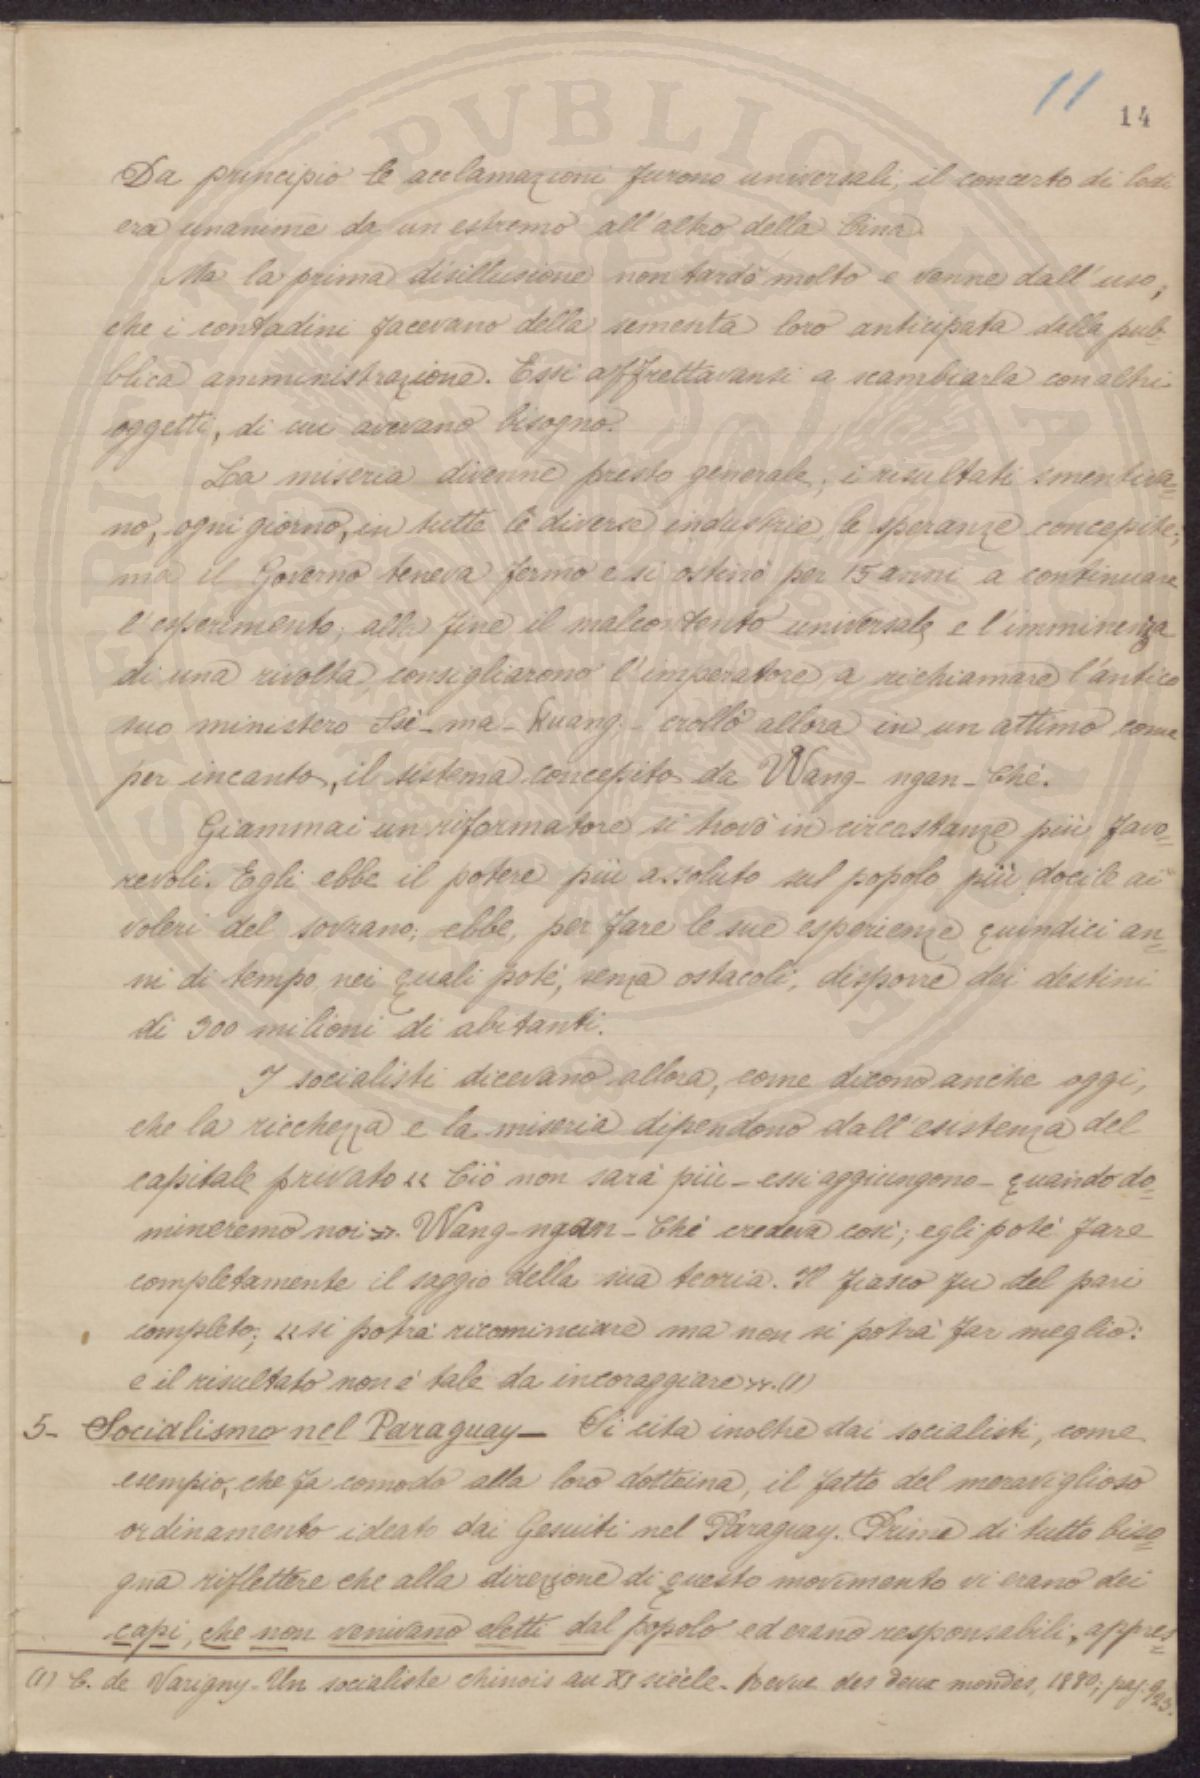 11
14
Da principio le acclamazioni furono universali, il concerto di lodi
era unanime da un estremo all'altro della Cina
Ma la prima disillusione non tardò molto e venne dall'uso,
che i contadini facevano della sementa loro anticipata dalla pub=
blica amministrazione. Essi affrettavansi a scambiarla con altri
oggetti, di cui avevano bisogno.
La miseria divenne presto generale; i risultati smentiva=
no, ogni giorno, in tutte le diverse industrie, le speranze concepite;
ma il Governo teneva fermo e si ostinò per 15 anni a continuare
l'esperimento; alla fine il malcontento universale e l'imminenza
di una rivolta consigliarono l'imperatore a richiamare l'antico
suo ministero Ssè-ma-Kuang - crollò allora in un attimo come
per incanto, il sistema concepito da Wang-ngan-Ché.
Giammai un riformatore si trovò in circostanze più favo=
revoli. Egli ebbe il potere più assoluto sul popolo più docile ai
voleri del sovrano; ebbe, per fare le sue esperienze quindici an=
ni di tempo nei quali poté, senza ostacoli, disporre dei destini
di 300 milioni di abitanti.
I socialisti dicevano allora, come dicono anche oggi,
che la ricchezza e la miseria dipendono dall'esistenza del
capitale privato « Ciò non sarà più - essi aggiungono - quando do=
mineremo noi ». Wang-ngan-Ché credeva così; egli poté fare
completamente il saggio della sua teoria. Il fiasco fu del pari
completo; « si potrà ricominciare ma non si potrà far meglio:
e il risultato non è tale da incoraggiare ». (1)
5- Socialismo nel Paraguay - Si cita inoltre dai socialisti, come
esempio, che fa comodo alla loro dottrina, il fatto del meraviglioso
ordinamento ideato dai Gesuiti nel Paraguay. Prima di tutto biso=
gna riflettere che alla direzione di questo movimento vi erano dei
capi, che non venivano eletti dal popolo ed erano responsabili, appres=
(1) C. de Varigny - Un socialiste chinois au XI siècle - Revue des deux mondes, 1880; pag. 923.